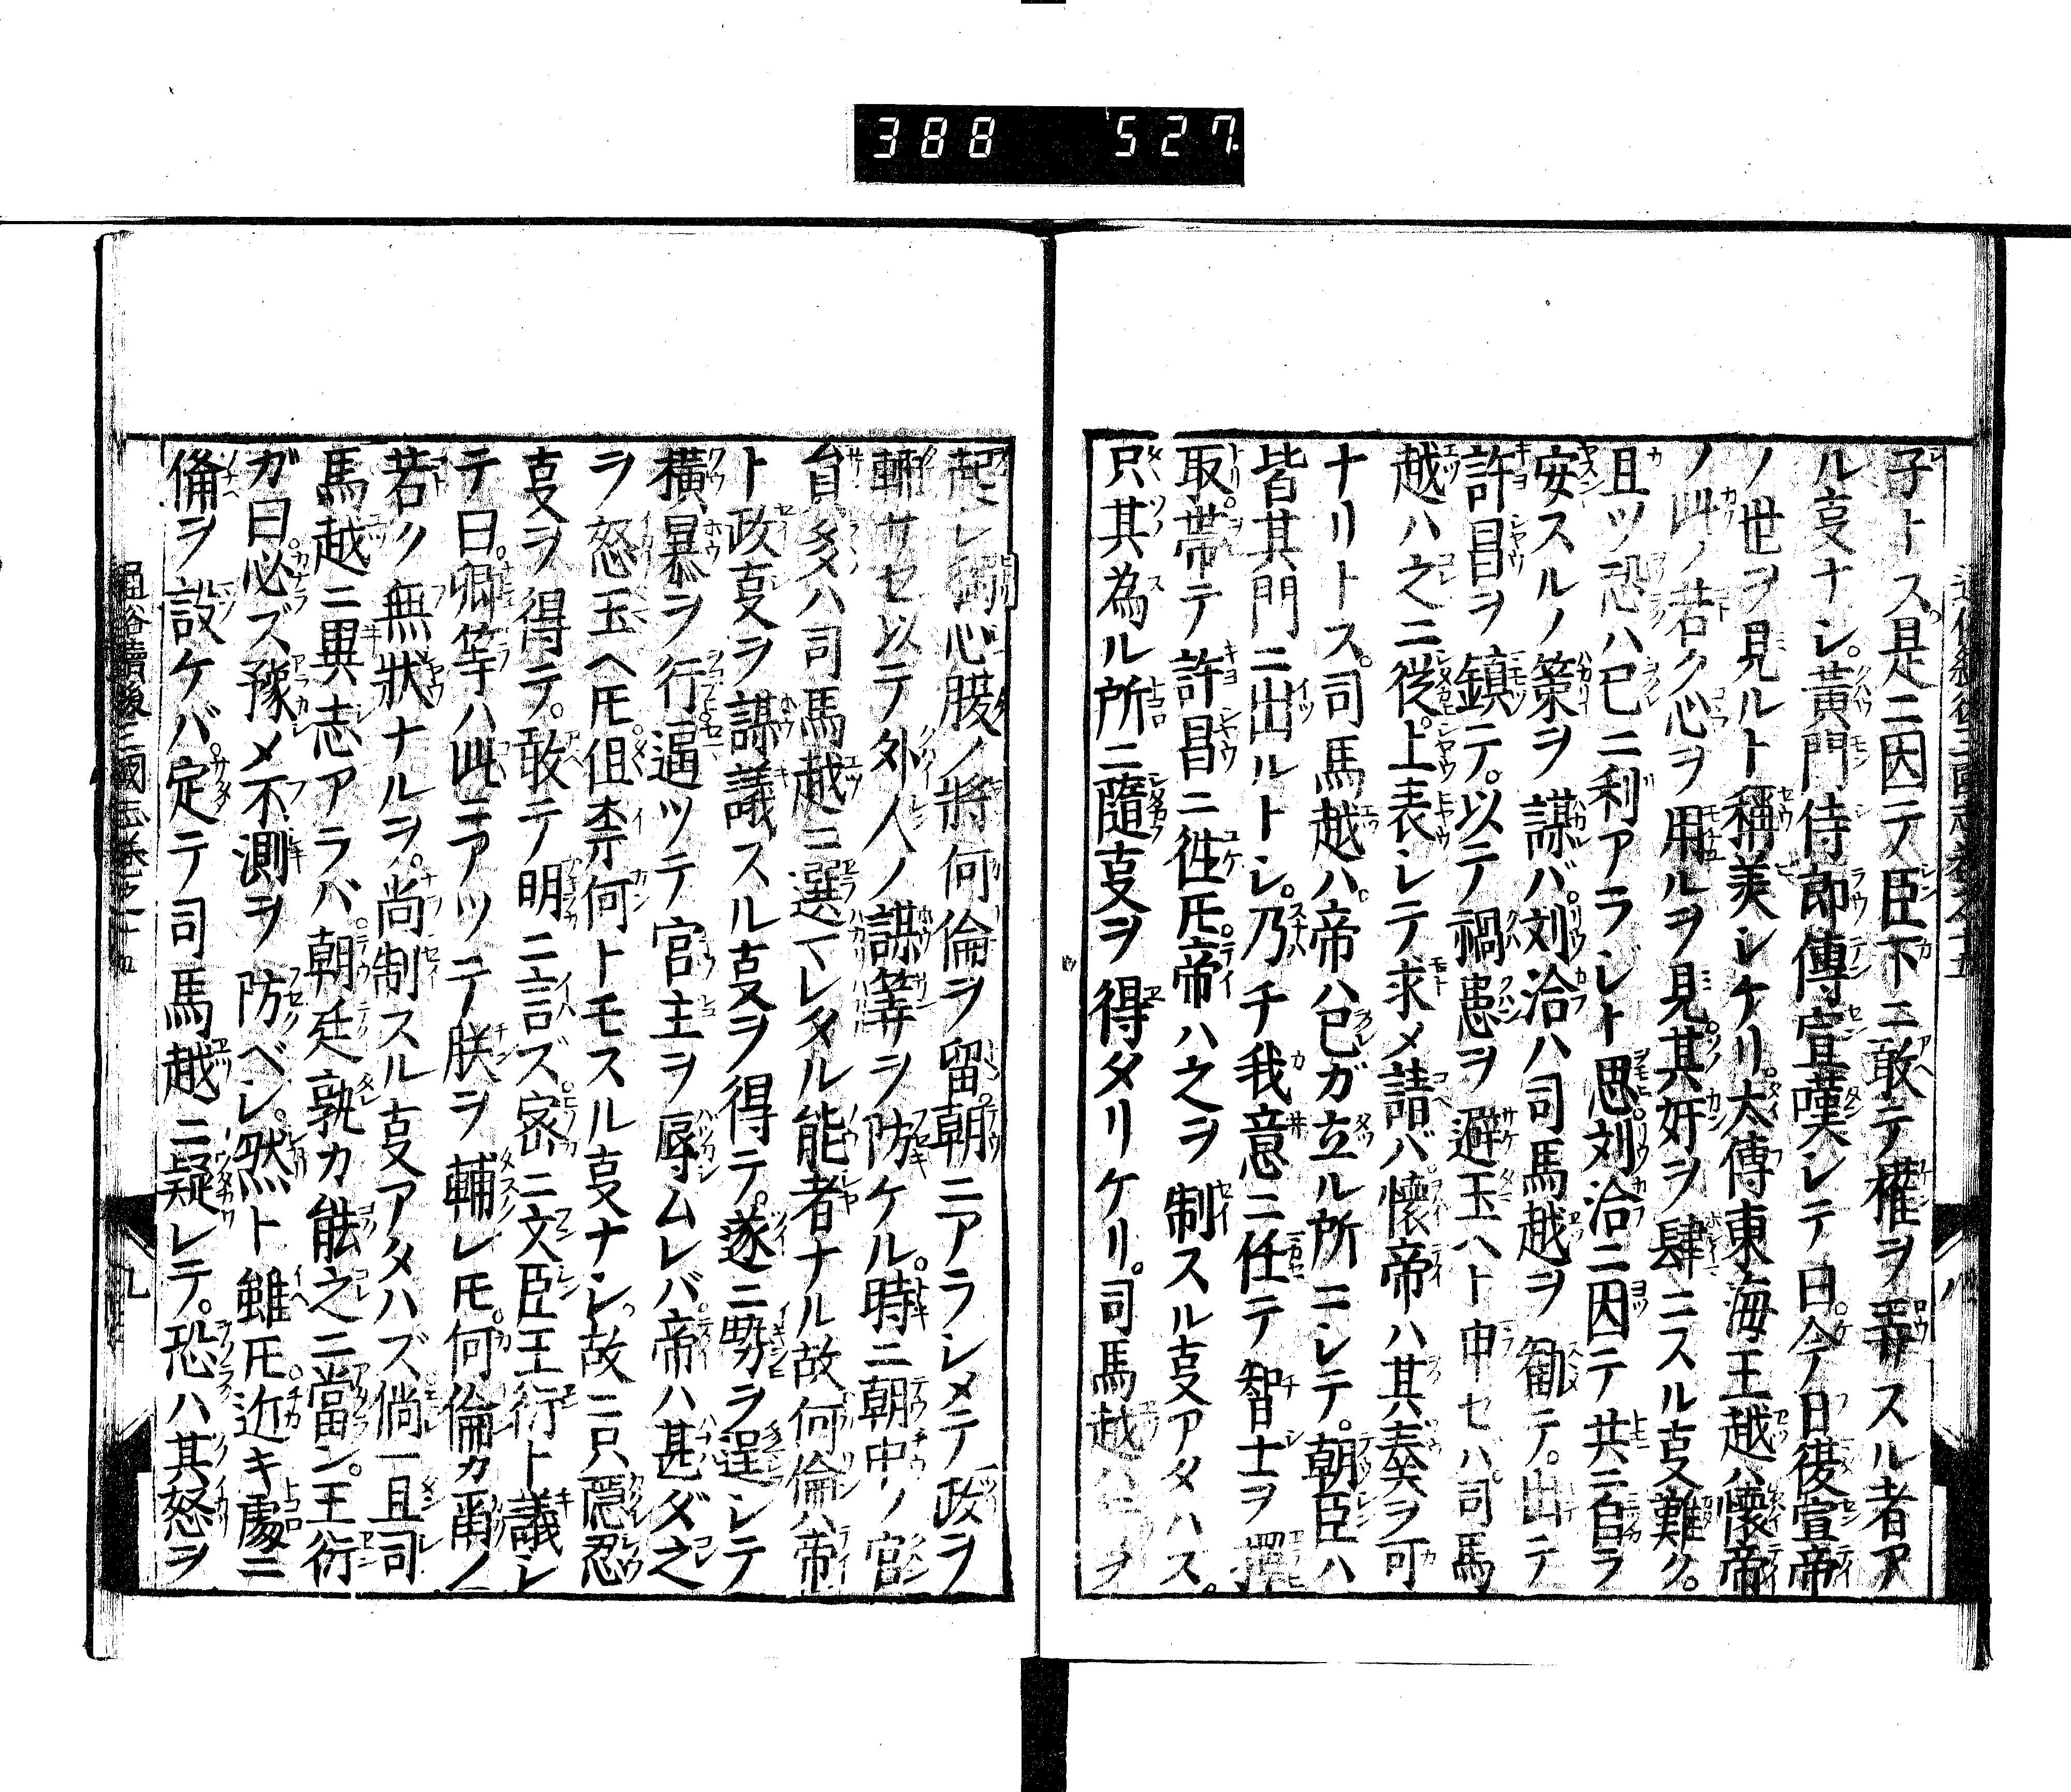 388 527
子トス是ニ因テ臣下ニ敢テ權ヲ弄スル者ア
ル𡴂ナシ。黃門侍郎傅宣嘆シテ曰今日復宣帝
ノ世ヲ見ルト稱美シケリ。太傅東海王越ハ懷帝
ノ此ノ若ク心ヲ用ルヲ見其奸ヲ肆ニスル𡴂難ク。
且ツ恐ハ已ニ利アラジト思劉洽ニ因テ共ニ自ラ
安スルノ策ヲ謀バ。刘洽ハ司馬越ヲ勸テ。出テ
許昌ヲ鎮テ。以テ禍患ヲ避玉ハト申セハ。司馬
越ハ之ニ從。上表シテ求メ請バ懷帝ハ其奏ヲ可
ナリトス。司馬越ハ帝ハ已ガ立ル所ニシテ。朝臣ハ
皆其門ニ出ルトシ。乃チ我意ニ任テ智士ヲ擇
取帶テ許昌ニ徃𪜈。帝ハ之ヲ制スル𡴂アタハス。
只其為ル所ニ隨𡴂ヲ得タリケリ。司馬越ハ
起シ獨心腹ノ將何倫ヲ留。朝ニアラシメテ政ヲ
輔サセ以テ外人ノ謀筭ヲ防ケル。時ニ朝中ノ官
員多ハ司馬越ニ選ハレタル能者ナル故何倫ハ帝
ト政𡴂ヲ謀議スル𡴂ヲ得テ。遂ニ勢ヲ逞シテ
橫暴ヲ行逼ツテ宮主ヲ辱ムレバ帝ハ甚ダ之
ヲ怒玉ヘ𪜈。但柰何トモスル𡴂ナシ。故ニ只隱忍
𡴂ヲ得テ。敢テ明ニ言ズ密ニ文臣王衍ト議シ
テ曰。卿等ハ此ニアツテ朕ヲ輔レ𪜈。何倫カ甭ノ
若ク無狀ナルヲ。尚制スル𡴂アタハズ倘一旦司
馬越ニ異志アラバ朝廷孰カ能之ニ當ン。王衍
ガ曰。必ズ豫メ不測ヲ防ベシ。然ト雖𪜈近キ處ニ
備ヲ設ケバ。定テ司馬越ニ疑レテ。恐ハ其怒ヲ
通俗續後三國志卷之十五 九